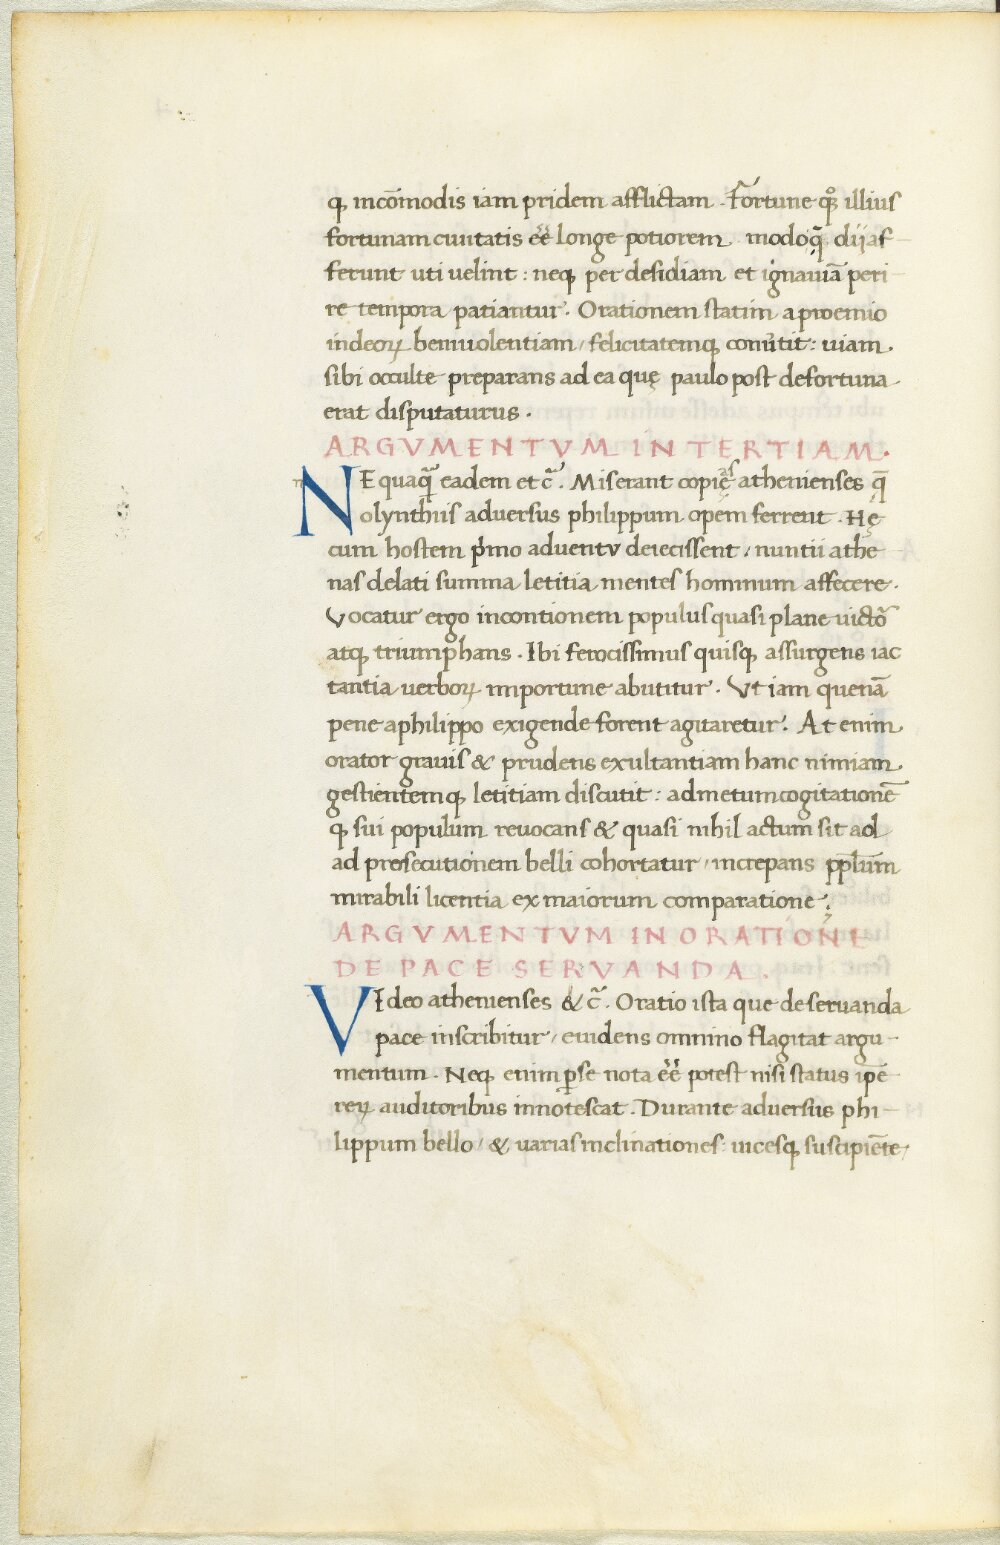 q, incōmodis iam pridem afflictam. Fortune qͦꝫ illius
fortunam ciuitatis eē longe potiorem modoq̄ dij af-
ferunt uti uelint: neq, per desidiam et ignauiā peri-
re tempora patiantur. Orationem statim a proemio
in deoꝝ beniuolentiam, felicitatemq, comittit: uiam.
sibi occulte preparans ad ea quę paulo post de fortuna
erat disputaturus.
ARGVMENTVM IN TERTIAM.
NE quaq̄ eadem et c̄. Miserant copięas athenienses q̄
olynthiis aduersus philippum opem ferrent. Hę
cum hostem pͥmo aduentv deiecissent, nuntii athe-
nas delati summa letitia mentes hominum affecere.
Vocatur ergo in contionem populus quasi plane uictoꝝ̄
atq, triumphans. Ibi ferocissimus quisq, assurgens iac
tantia uerboꝝ importune abutitur. Vt iam quenā
pene a philippo exigende forent agitaretur. At enim
orator grauis & prudens exultantiam hanc nimiam
gestientemq, letitiam discutit: ad metum cogitationē
q, sui populum reuocans & quasi nihil actum sit ad
ad prosecutionem belli cohortatur, increpans pp̄lum
mirabili licentia ex maiorum comparatione.
ARGVMENTVM IN ORATIONE
DE PACE SERVANDA.
VIdeo athenienses & c̄. Oratio ista que de seruanda
pace inscribitur, euidens omnino flagitat argu-
mentum. Neq, enim ꝑ se nota eē potest nisi status ip̄e
reꝝ auditoribus innotescat. Durante aduersus phi-
lippum bello, & uarias inclinationes uicesq, suscipiēte,